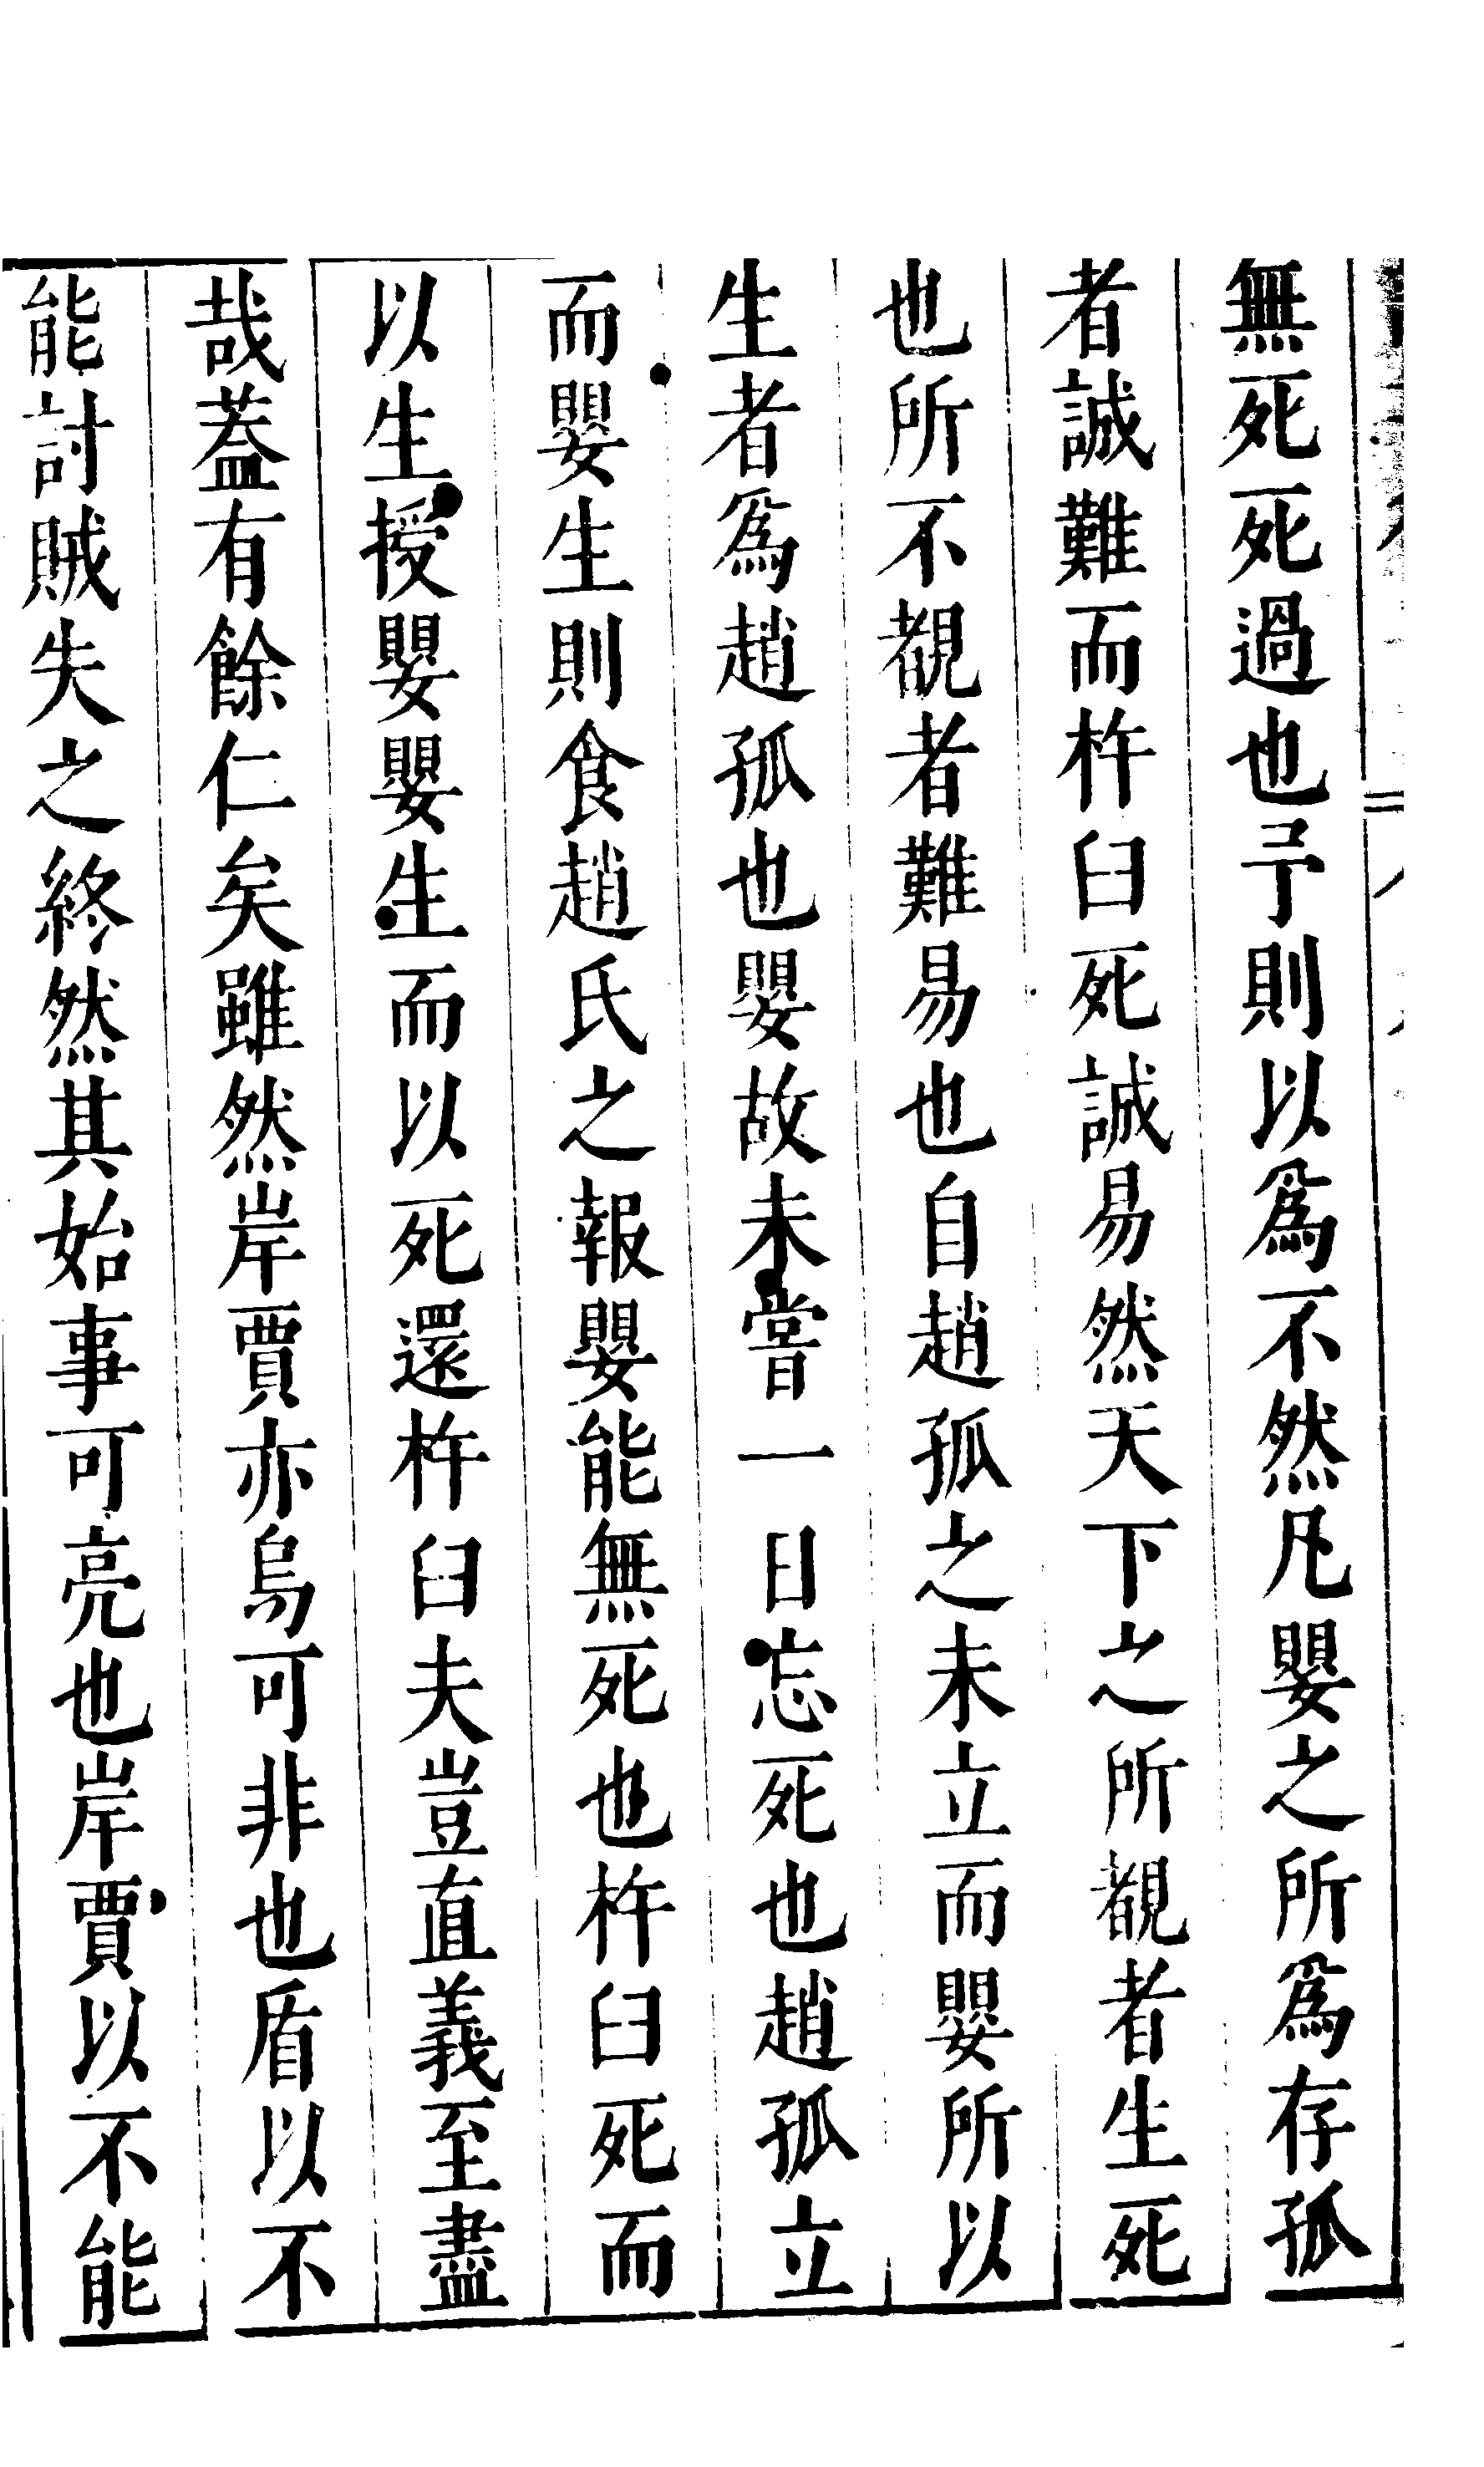 無死死過也予則以爲不然凡嬰之所爲存孤
者誠難而杵臼死誠易然天下之所覩者生死
也所不覩者難易也自趙孤之未立而嬰所以
生者爲趙孤也嬰故未嘗一日忘死也趙孤立
而嬰生則食趙氏之報嬰能無死也杵臼死而
以生授嬰嬰生而以死還杵臼夫豈直義至盡
哉蓋有餘仁矣雖然岸賈亦烏可非也盾以不
能討賊失之終然其始事可亮也岸賈以不能